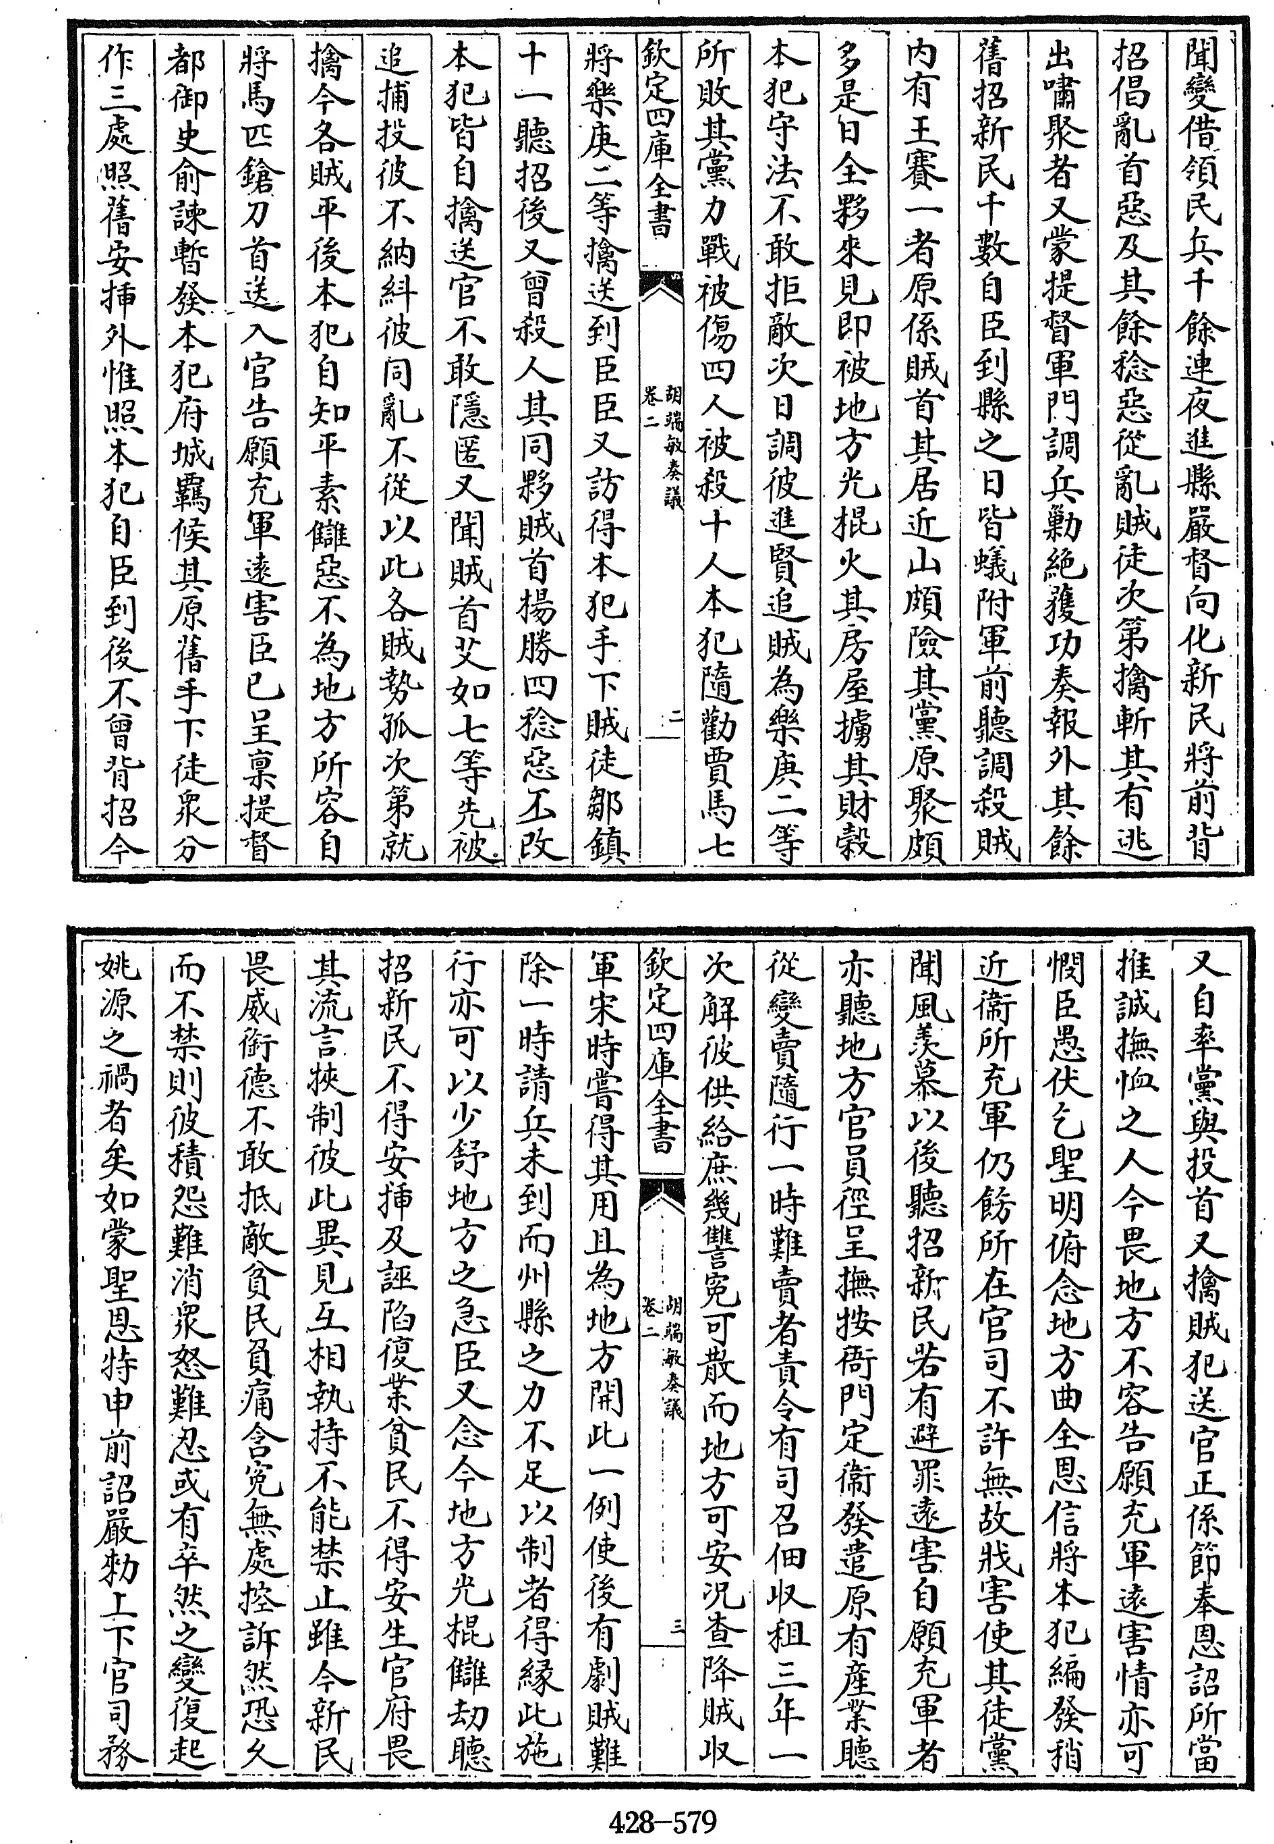 聞變借領民兵千餘連夜進縣嚴督向化新民將前背
招倡亂首惡及其餘稔惡從亂賊徒次第擒斬其有逃
出嘯聚者又蒙提督軍門調兵勦絶獲功奏報外其餘
舊招新民千數自臣到縣之日皆蟻附軍前聽調殺賊
内有王賽一者原係賊首其居近山頗險其黨原聚頗
多是日全夥來見即被地方光棍火其房屋擄其財穀
本犯守法不敢拒敵次日調彼進賢追賊為樂庚二等
所敗其黨力戰被傷四人被殺十人本犯隨勸賈馬七
欽定四庫全書
胡端敏奏議
卷二
二
將樂庚二等擒送到臣臣又訪得本犯手下賊徒鄒鎮
十一聽招後又曾殺人其同夥賊首揚勝四稔惡不改
本犯皆自擒送官不敢隱匿又聞賊首艾如七等先被
追捕投彼不納糾彼同亂不從以此各賊勢孤次第就
擒今各賊平後本犯自知平素讎惡不為地方所容自
將馬匹鎗刀首送入官告願充軍遠害臣已呈禀提督
都御史俞諫暫發本犯府城羈候其原舊手下徒衆分
作三處照舊安揷外惟照本犯自臣到後不曾背招今
又自率黨與投首又擒賊犯送官正係節奉恩詔所當
推誠撫恤之人今畏地方不容告願充軍遠害情亦可
憫臣愚伏乞聖明俯念地方曲全恩信將本犯編發稍
近衞所充軍仍飭所在官司不許無故戕害使其徒黨
聞風羡慕以後聽招新民若有避罪遠害自願充軍者
亦聽地方官員徑呈撫按衙門定衞發遣原有産業聽
從變賣隨行一時難賣者責令有司召佃收租三年一
次解彼供給庶幾讐寃可散而地方可安况查降賊收
欽定四庫全書
胡端敏奏議
卷二
三
軍宋時嘗得其用且為地方開此一例使後有劇賊難
除一時請兵未到而州縣之力不足以制者得縁此施
行亦可以少舒地方之急臣又念今地方光棍讎劫聽
招新民不得安揷及誣陷復業貧民不得安生官府畏
其流言挾制彼此異見互相執持不能禁止雖今新民
畏威銜德不敢抵敵貧民負痛含寃無處控訴然恐久
而不禁則彼積怨難消衆怒難忍或有卒然之變復起
姚源之禍者矣如蒙聖恩特申前詔嚴勅上下官司務
428-579